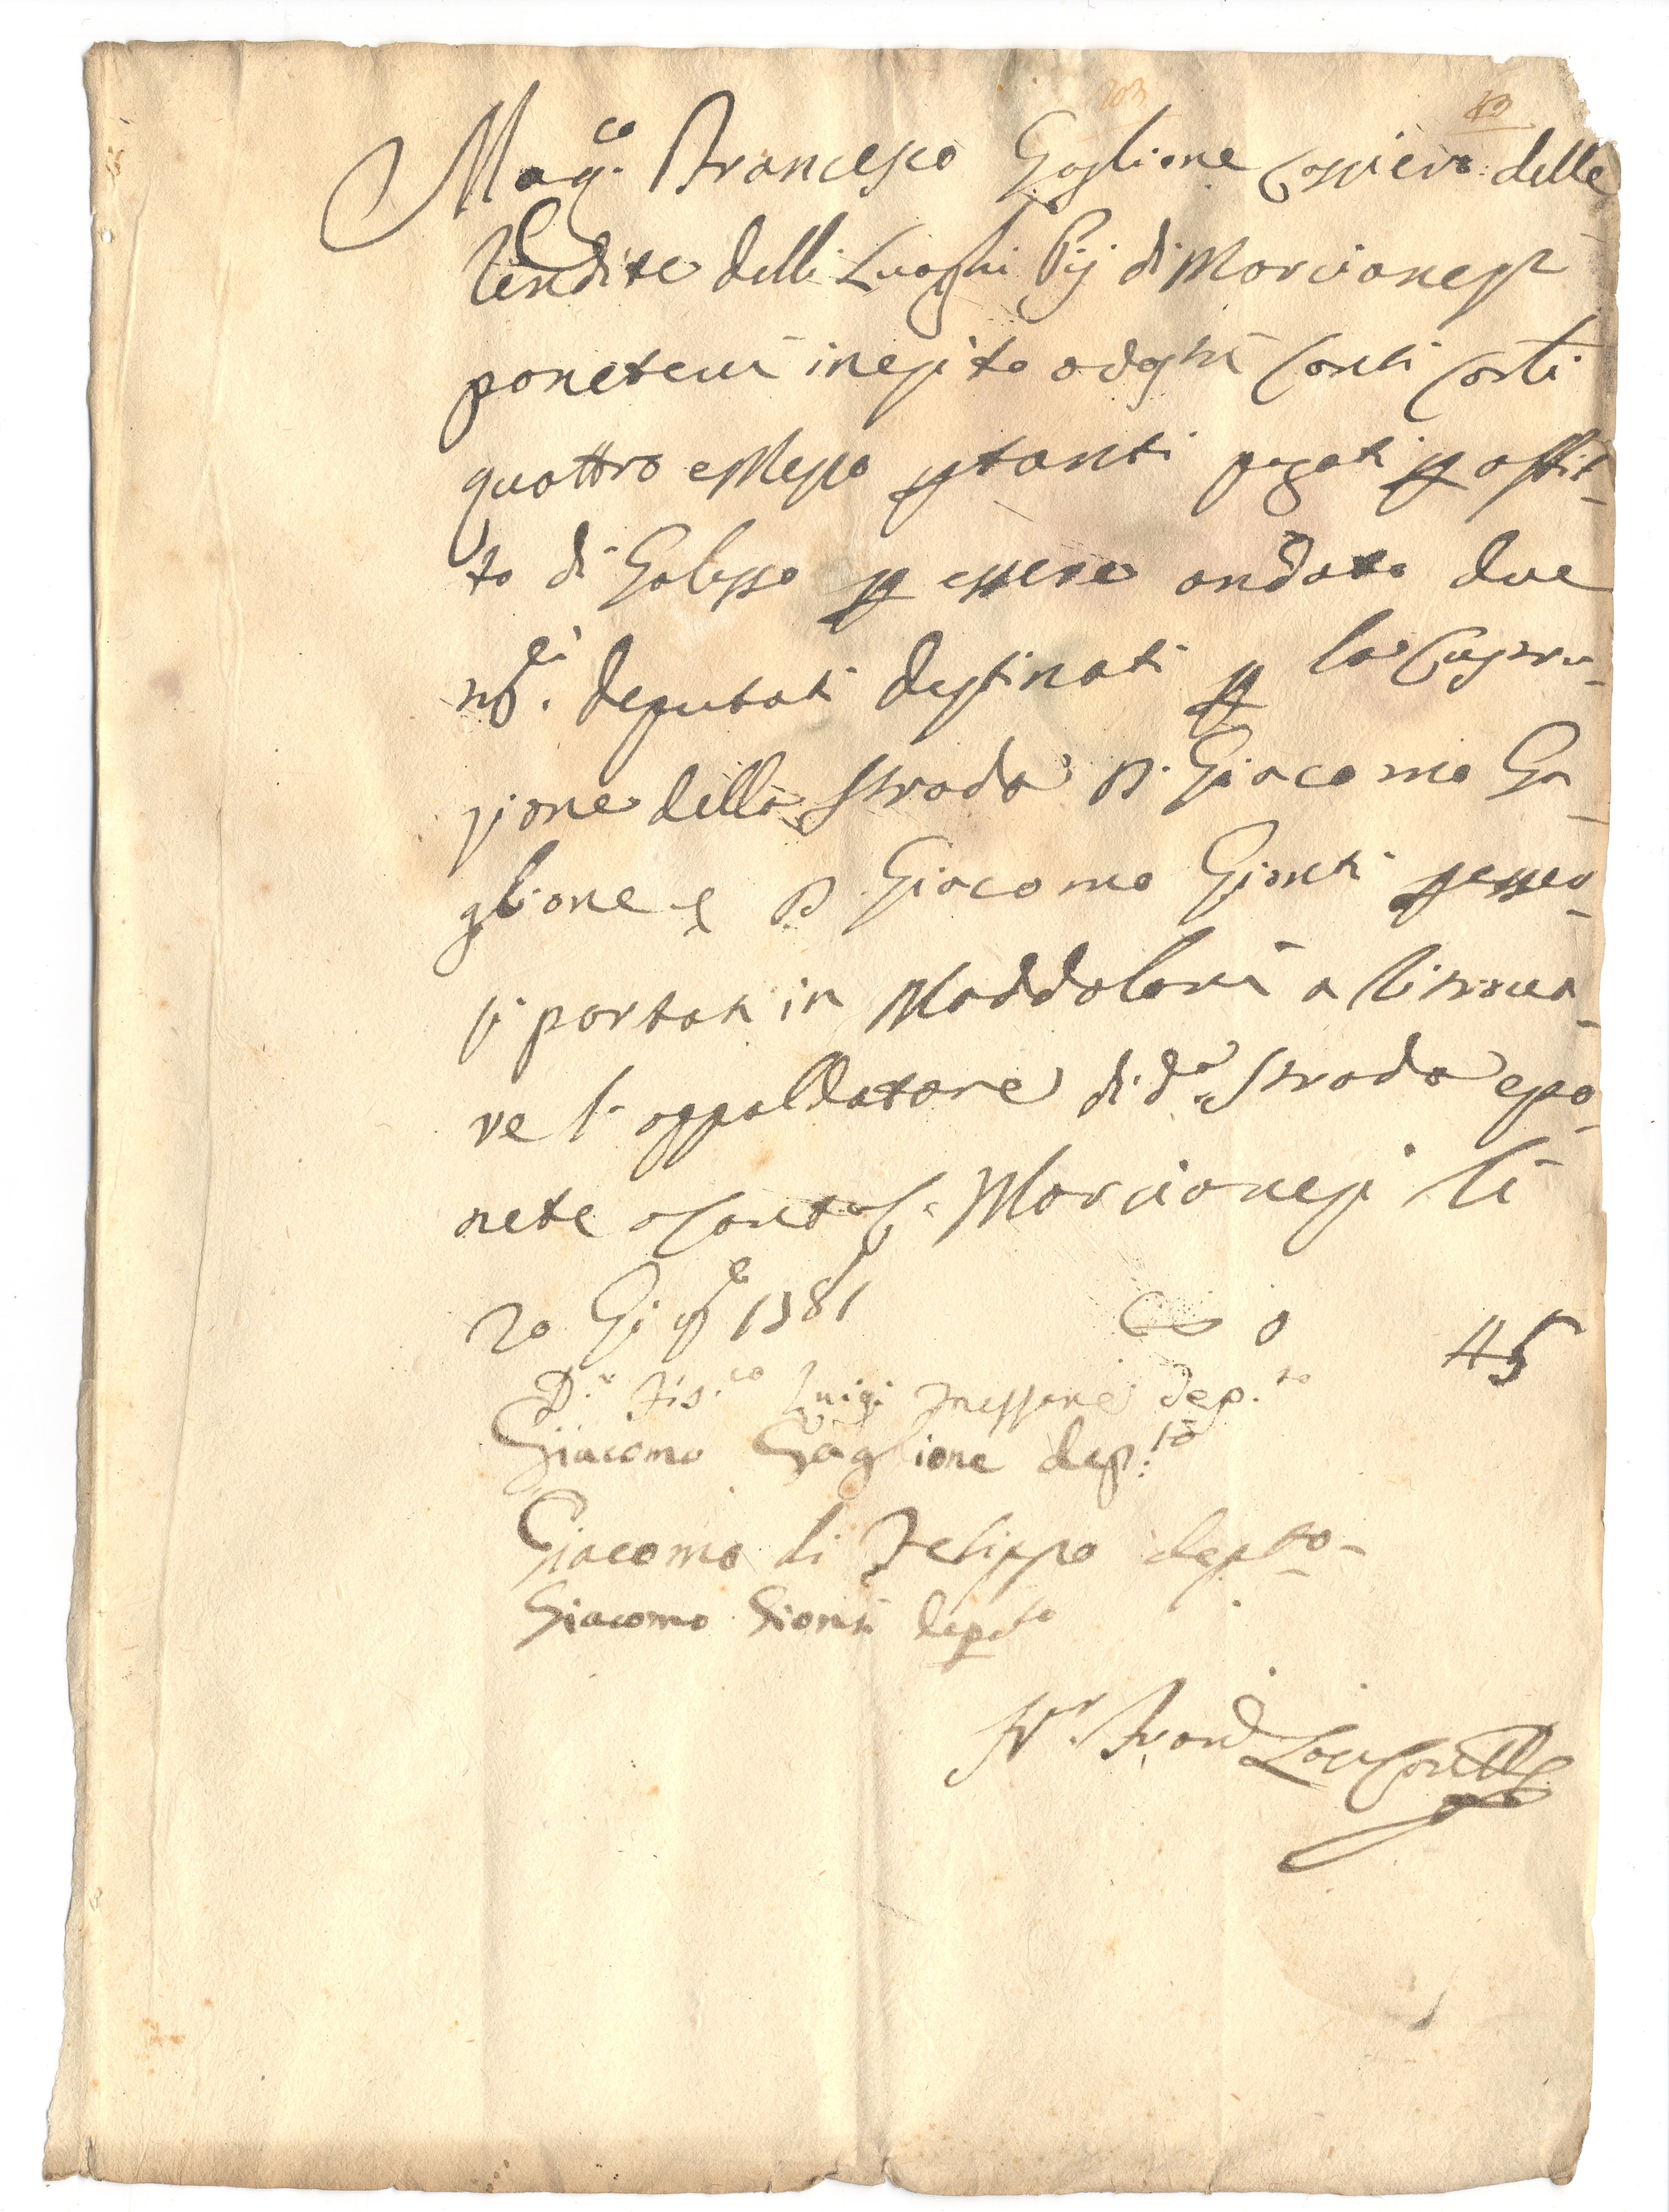 Mag.co Francesco Gaglione Cassiero delle
Rendite delli Luoghi Pij di Marcianesi
ponetevi in esito a dogni conti carli
quattro e mezzo p tanti pagati p affit-
to di Galesso p essere andato due
nři deputati destinati p la Costru-
zione della strada D. Giacomo Ga-
glione e D Giacomo Gionti p esser-
si portati in Maddaloni a ritrova-
re l'appaldatore di d.a strada e po-
nete a conto Marcianesi li
20 1781 0 45
D.r Fis.co Luigi dep.to
Giacomo Gaglione dep:to
Giacomo di Felippo depto
Giacomo Gionti deputo